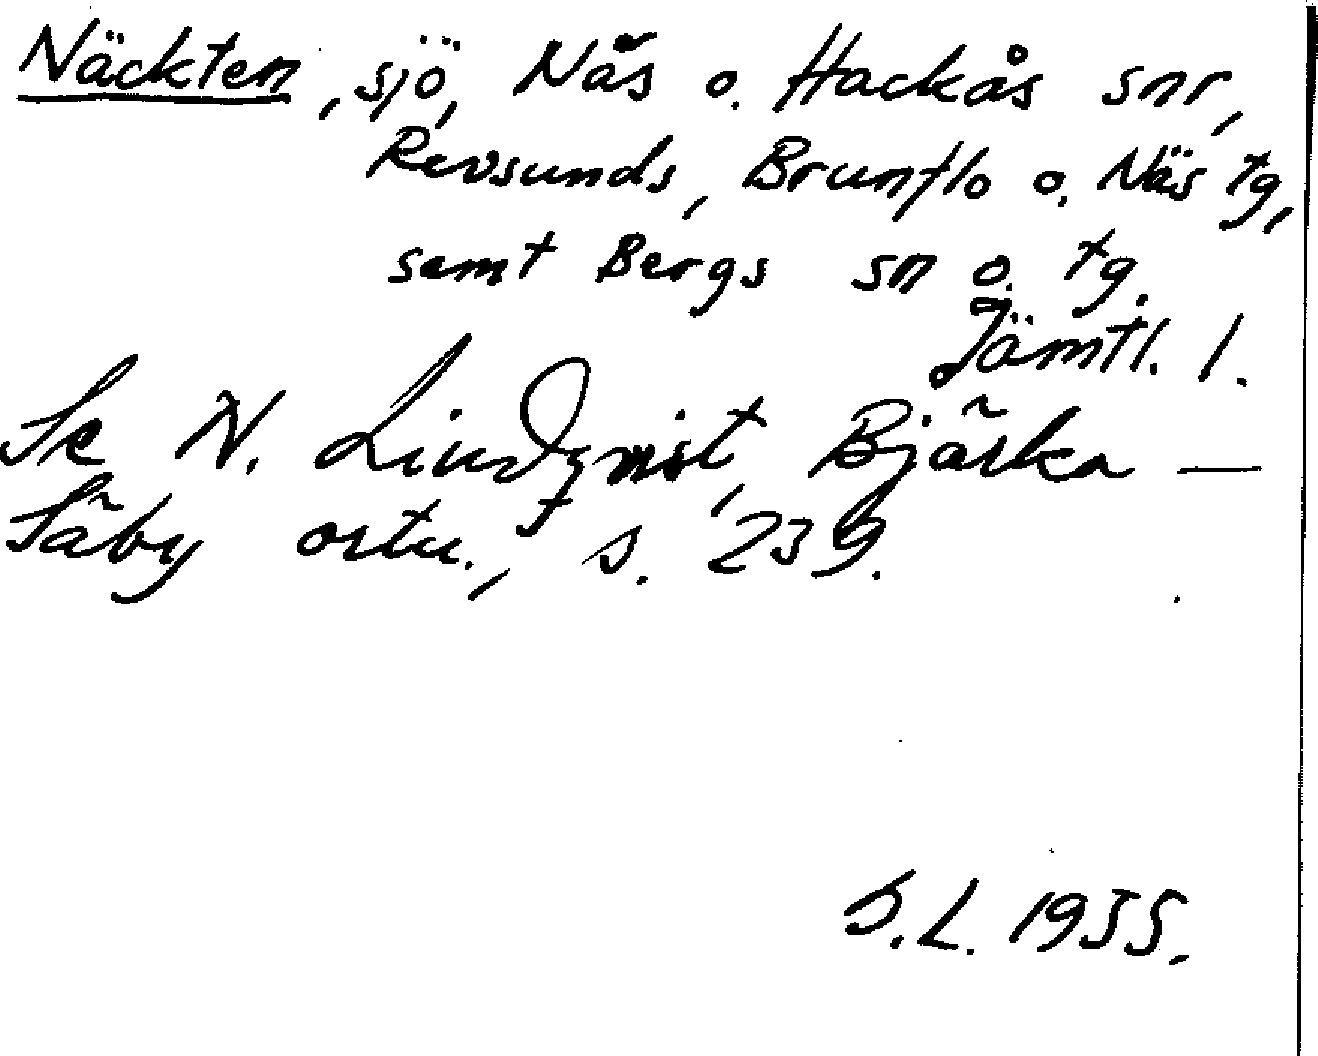 Näckten, sjö, Näs o. Hackås snr,
Revsunds, Brunflo o. Näs tg,
samt Bergs sn o. tg.
Jämtl. l.
Se N. Lindqvist, Bjärka-
Säby ortn., I s. 239.
S.L. 1955.